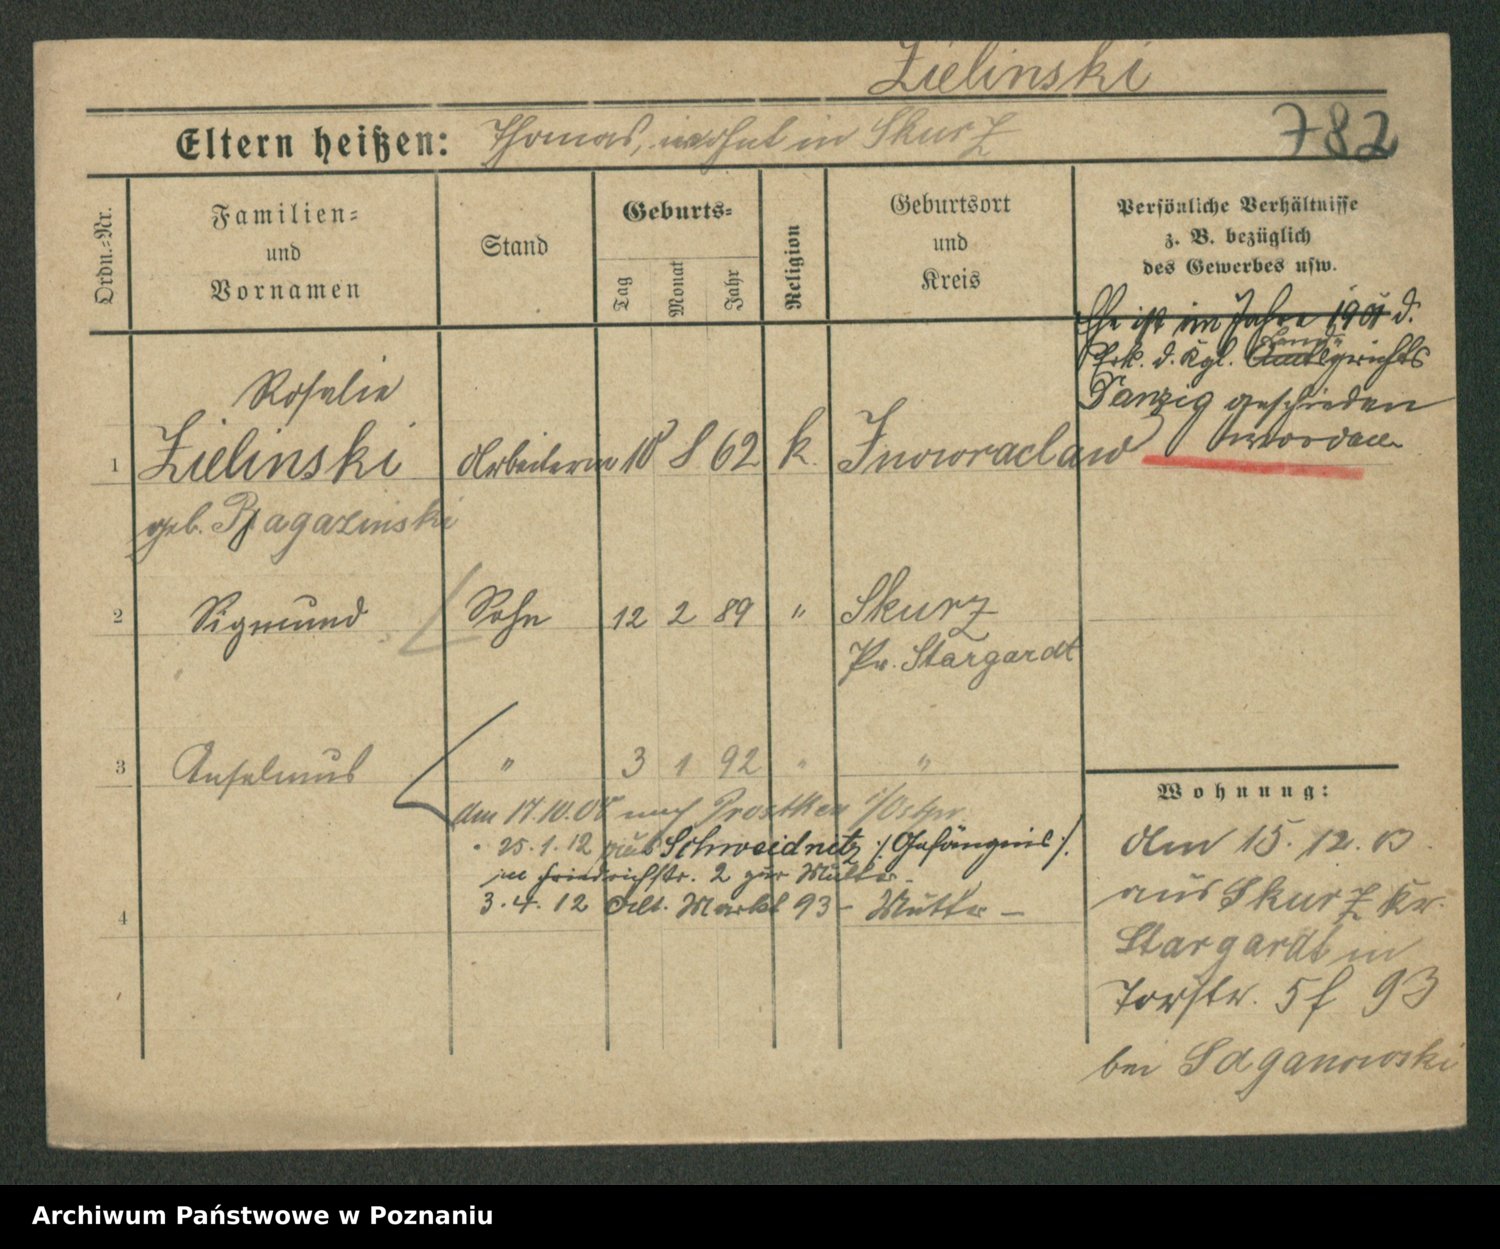 Zielinski
782
Eltern heißen: Thomas, wohnt in Skurz
Ordn.=Nr.
Familien=
und
Vornamen
Stand
Geburts=
Tag
Monat
Jahr
Religion
Geburtsort
und
Kreis
Persönliche Verhältnisse
z. B. bezüglich
des Gewerbes usw.
Ehe ist im Jahre 1901 d.
Erk. d. Kgl. Amtsgerichts
Land-
Danzig geschieden
worden
Rosalie
1 Zielinski Arbeiterin 18 8 62 k. Inowraclaw
geb.
2 Sigmund Sohn 12 2 89 " Skurz
Pr. Stargardt
3 Anselmus " 3 1 92 " "
am 17.10.08 nach Prostken i/Ostpr.
" 25.1.12 aus Schweidnitz /: Gefängnis :/.
in Friedrichstr. 2 zur Mutter -
3.4.12 Alt. Markt 93 - Mutter -
4
Wohnung:
Am 15.12.03.
aus Skurz Kr.
Stargardt in
Torstr. 5 f 93
bei Saganowski
Archiwum Państwowe w Poznaniu